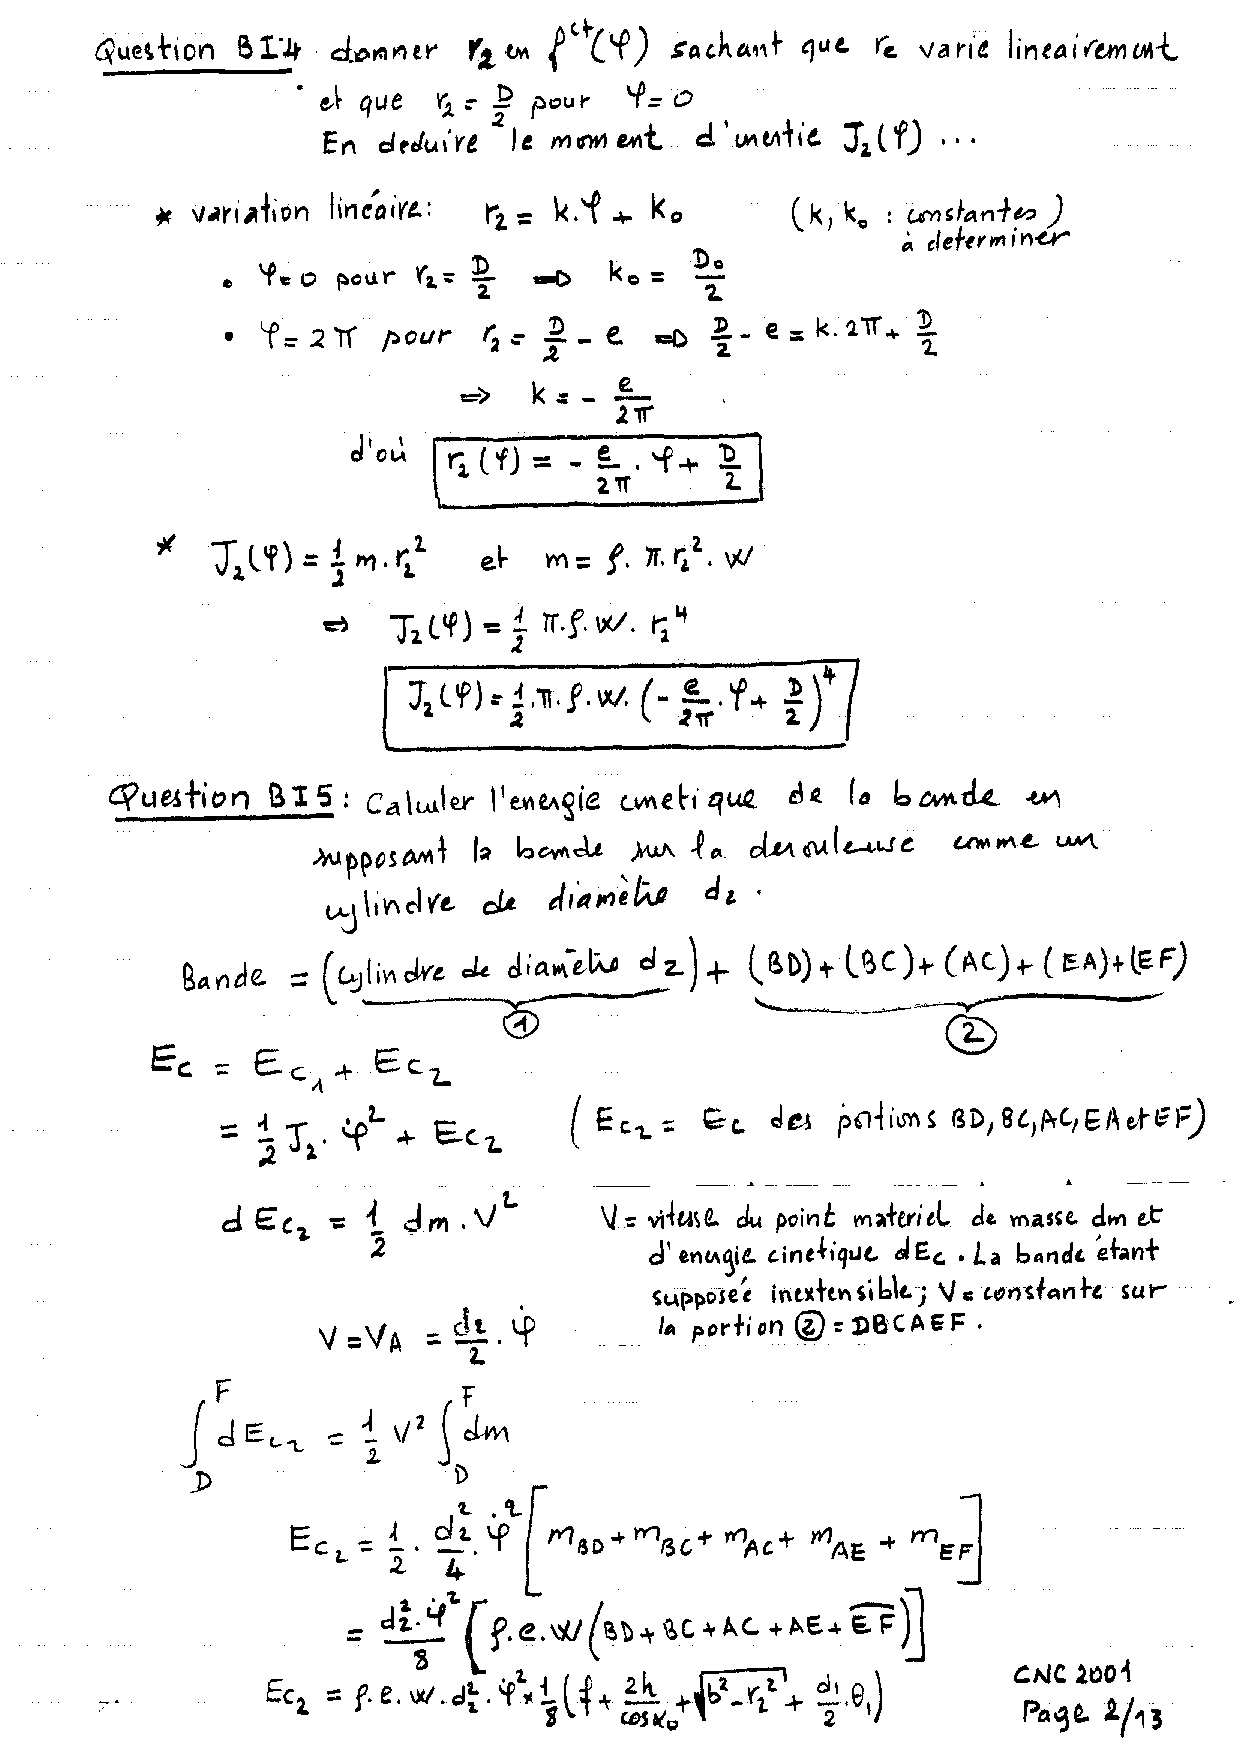 Question BI4 donner r₂ en fct(φ) sachant que re varie lineairement
et que r₂ = D/2 pour φ = 0
En deduire le moment d'inertie J₂(φ) ...
* variation linéaire: r₂ = k.φ + k₀ (k, k₀ : constantes)
à determiner
• φ = 0 pour r₂ = D/2 ⇒ k₀ = D₀/2
• φ = 2π pour r₂ = D/2 - e ⇒ D/2 - e = k.2π + D/2
⇒ k = - e/2π
d'où r₂(φ) = - e/2π . φ + D/2
* J₂(φ) = 1/2 m.r₂² et m = ρ. π.r₂². W
⇒ J₂(φ) = 1/2 π.ρ.W. r₂⁴
J₂(φ) = 1/2.π.ρ.W. (- e/2π.φ + D/2)⁴
Question BI5 : Calculer l'energie cinetique de la bande en
supposant la bande sur la derouleuse comme un
cylindre de diamètre d₂.
Bande = (cylindre de diamètre d₂) + (BD) + (BC) + (AC) + (EA) + (EF)
① ②
Ec = Ec₁ + Ec₂
= 1/2 J₂. φ̇² + Ec₂ (Ec₂ = Ec des portions BD, BC, AC, EA et EF)
dEc₂ = 1/2 dm. V² V = vitesse du point materiel de masse dm et
d'energie cinetique dEc. La bande étant
supposée inextensible; V = constante sur
V = VA = d₂/2 . φ̇ la portion ② = DBCAEF.
∫_D^F dEc₂ = 1/2 V² ∫_D^F dm
Ec₂ = 1/2 . d₂²/4 . φ̇² [mBD + mBC + mAC + mAE + mEF]
= d₂².φ̇²/8 [ρ.e.W (BD + BC + AC + AE + E͞F)]
Ec₂ = ρ.e.w.d₂².φ̇² × 1/8 (f + 2h/cosα₀ + √(b² - r₂²) + d₁/2.θ₁)
CNC 2001
Page 2/13